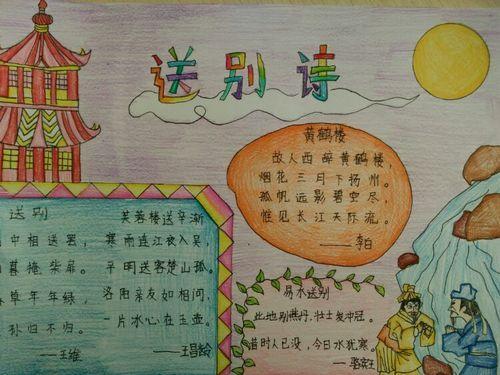 送别诗
黄鹤楼
故人西辞黄鹤楼，
烟花三月下扬州。
孤帆远影碧空尽，
惟见长江天际流。
——李白
送别
中相送罢，
暮掩柴扉。
草年年绿，
孙归不归。
——王维
芙蓉楼送辛渐
寒雨连江夜入吴，
平明送客楚山孤。
洛阳亲友如相问，
一片冰心在玉壶。
——王昌龄
易水送别
此地别燕丹，壮士发冲冠。
惜时人已没，今日水犹寒。
——骆宾王